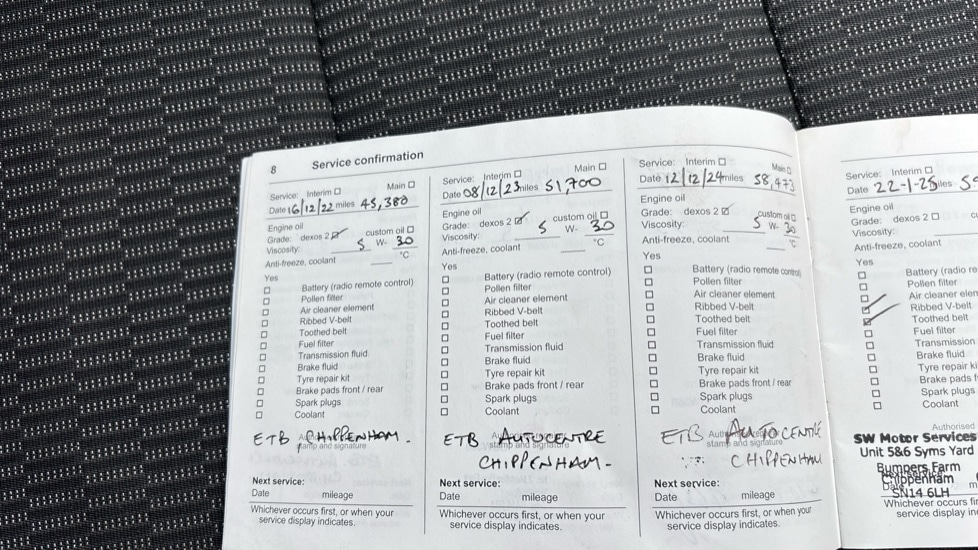 8 Service confirmation
Service: Interim ☐ Main ☐
Date 16/12/22 miles 45,380
Engine oil
Grade: dexos 2 ☑ custom oil ☐
Viscosity: 5 W- 30
Anti-freeze, coolant °C
Yes
☐ Battery (radio remote control)
☐ Pollen filter
☐ Air cleaner element
☐ Ribbed V-belt
☐ Toothed belt
☐ Fuel filter
☐ Transmission fluid
☐ Brake fluid
☐ Tyre repair kit
☐ Brake pads front / rear
☐ Spark plugs
☐ Coolant
ETB CHIPPENHAM.
stamp and signature
Next service:
Date mileage
Whichever occurs first, or when your
service display indicates.
Service: Interim ☐ Main ☐
Date 08/12/23 miles 51,700
Engine oil
Grade: dexos 2 ☑ custom oil ☐
Viscosity: 5 W- 30
Anti-freeze, coolant °C
Yes
☐ Battery (radio remote control)
☐ Pollen filter
☐ Air cleaner element
☐ Ribbed V-belt
☐ Toothed belt
☐ Fuel filter
☐ Transmission fluid
☐ Brake fluid
☐ Tyre repair kit
☐ Brake pads front / rear
☐ Spark plugs
☐ Coolant
ETB AUTOCENTRE
stamp and signature
CHIPPENHAM-
Next service:
Date mileage
Whichever occurs first, or when your
service display indicates.
Service: Interim ☐ Main ☐
Date 12/12/24 miles 58,473
Engine oil
Grade: dexos 2 ☑ custom oil ☐
Viscosity: 5 W- 30
Anti-freeze, coolant °C
Yes
☐ Battery (radio remote control)
☐ Pollen filter
☐ Air cleaner element
☐ Ribbed V-belt
☐ Toothed belt
☐ Fuel filter
☐ Transmission fluid
☐ Brake fluid
☐ Tyre repair kit
☐ Brake pads front / rear
☐ Spark plugs
☐ Coolant
ETB AUTOCENTRE
stamp and signature
CHIPPENHAM
Next service:
Date mileage
Whichever occurs first, or when your
service display indicates.
Service: Interim ☐
Date 22-1-25
Engine oil
Grade: dexos 2 ☐
Viscosity:
Anti-freeze, coolant
Yes
☐ Battery (radio
☐ Pollen filter
Air cleaner
☑ Ribbed V-belt
☑ Toothed belt
☐ Fuel filter
☐ Transmission
☐ Brake fluid
☐ Tyre repair
☐ Brake pads
☐ Spark plugs
☐ Coolant
Authorised
SW Motor Services
Unit 5&6 Syms Yard
Bumpers Farm
Chippenham
SN14 6LH
Whichever occurs
service display